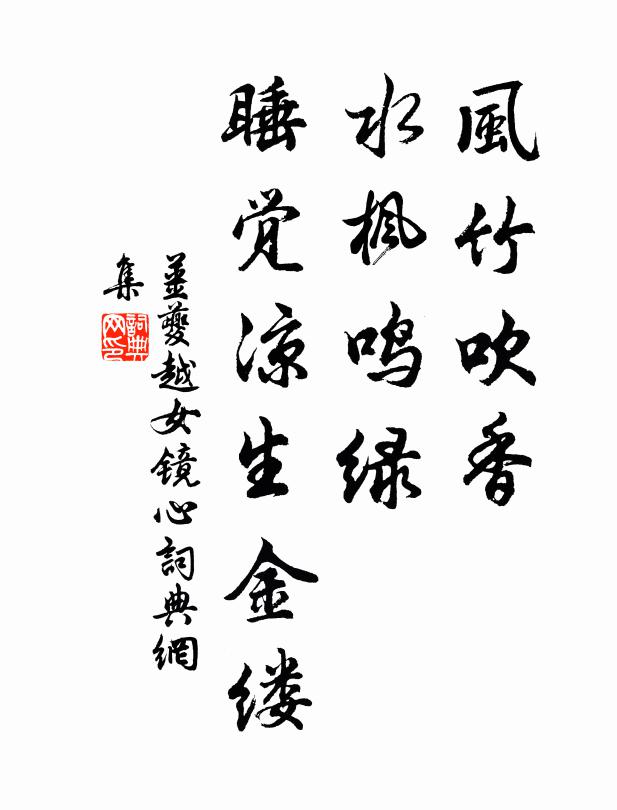 風竹吹香
水枫鸣绿
睡觉凉生金缕
姜夔越女镜心詞典網
集
詞典
网印